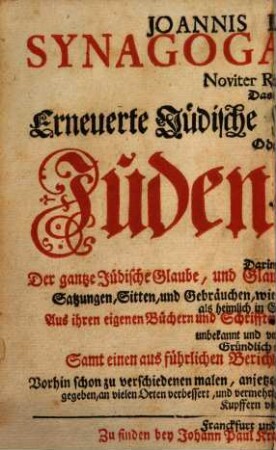 JOANNIS
SYNAGOGA
Noviter
Das
Erneuerte Jüdische
Od
Jüden-
Darin
Der gantze Jüdische Glaube, und Glau
Satzungen, Sitten, und Gebräuchen, wie
als heimlich in
Aus ihren eigenen Büchern und Schrifften
unbekannt und
Gründlich
Samt einen aus führlichen Berich
Vorhin schon zu verschiedenen malen, anjetzo
gegeben, an vielen Orten verbessert, und vermehr
Kupffern
Franckfurt und
Zu finden bey Johann Paul